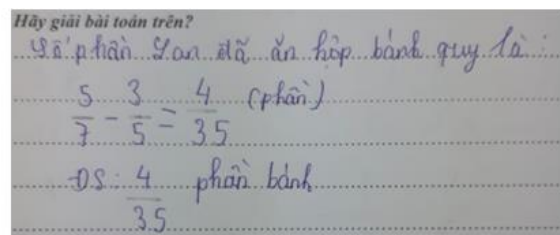 Hãy giải bài toán trên?
Số phần Lan đã ăn hộp bánh quy là :
5/7 - 3/5 = 4/35 (phần)
ĐS: 4/35 phần bánh